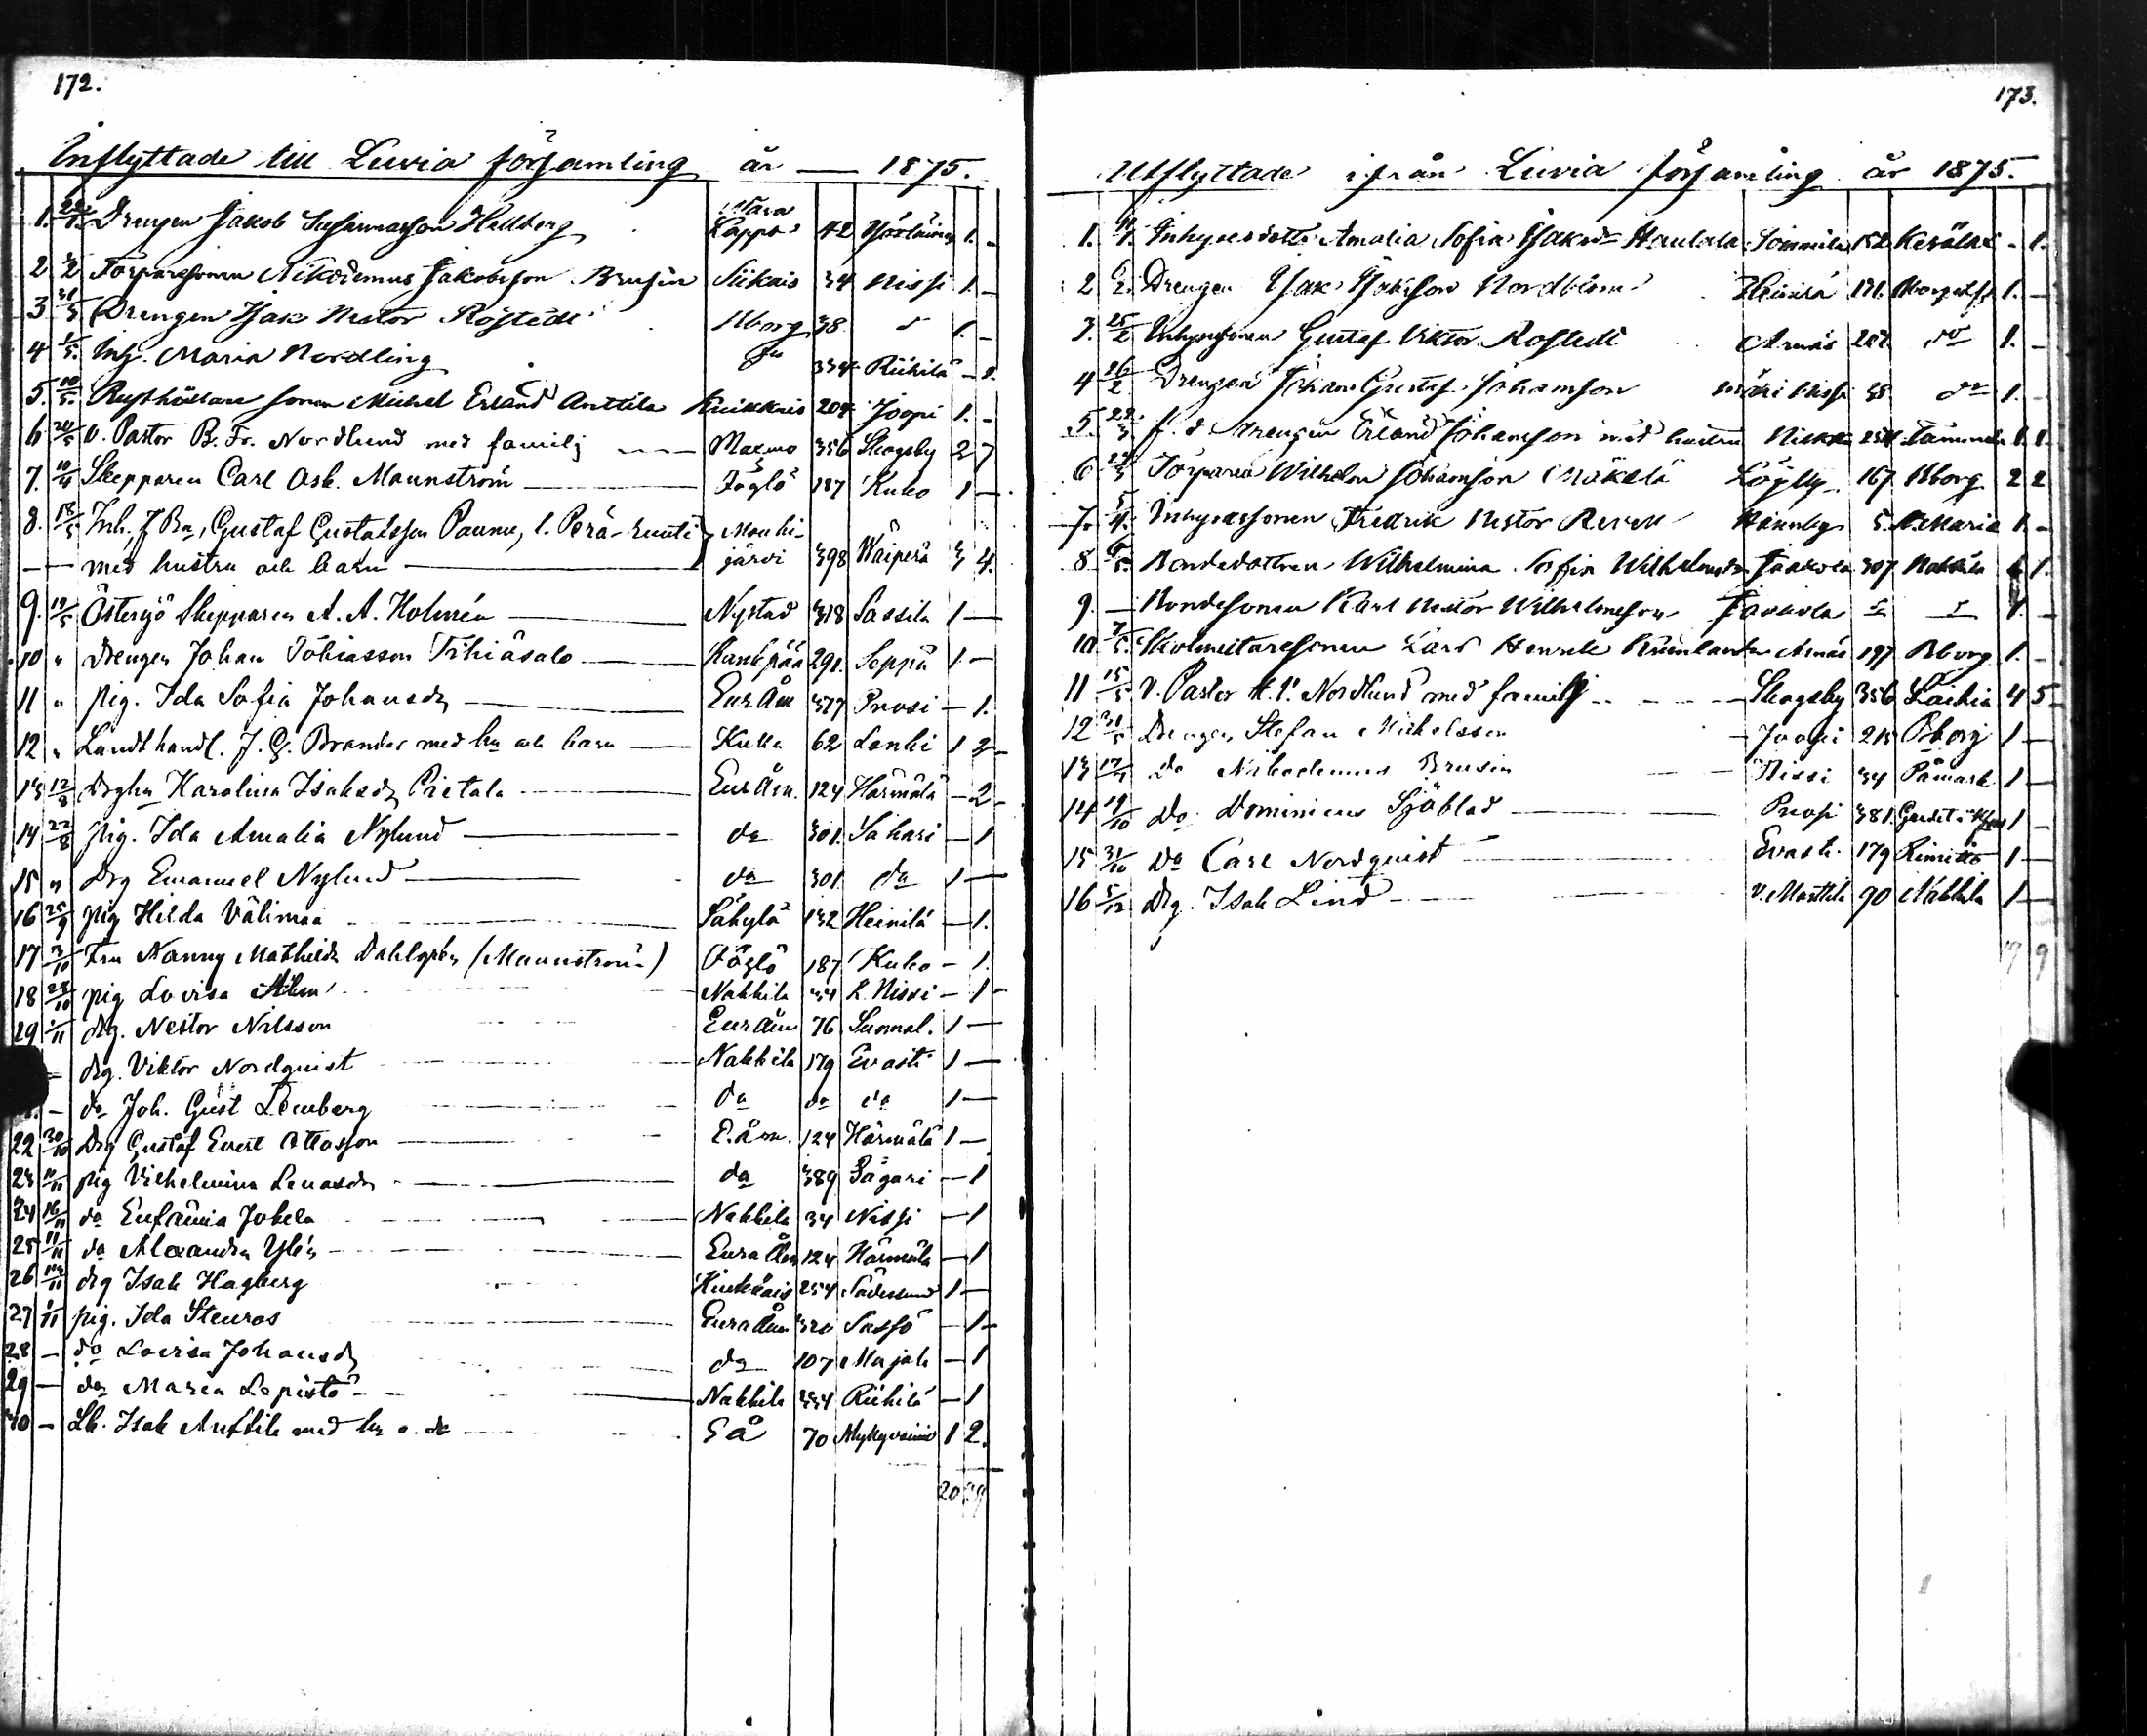 172.
Inflyttade till Luvia församling år — 1875.
1. Drengen Jakob Hellberg Lappo 42 1. -
2 2/2 Torparesonen Nikodemus Jakobsson Brusin Siikais 34 Nissi 1. -
3 Drengen Isak Nestor Rostedt Bborg 38 1. -
4 Inh. Maria Nordling do 334 Riihilä - 1.
5. 10/5. Rusthållare sonen Michel Erland Anttila Kiukkais 204 Joopi 1. -
6 20/5 v. Pastor B. Fr. Nordlund med familj Maxmo 356 Skogsby 2 7
7. 10/4 Skepparen Carl Osk. Maunström Föglö 187 Kuko 1 -
8. 18/5 Inh. f Bn, Gustaf Gustafsson Paunu, l. Perä-Kuuti Mouhi-
— med hustru och barn järvi 398 Waiperä 3 4.
9. 19/5 Östersjö Skepparen A. A. Holmén Nystad 318 Sassila 1 —
10 " Drengen Johan Tobiasson Kankpää 291. Seppä 1 -
11 " pig. Ida Sofia Johansdr EurÅm 377 Prosi — 1.
12 " Landthandl. J. G. Brander med hu och barn Kulla 62 Lanki 1 3 -
13 12/8 Karolina Isaksdr Pietala EurÅm. 124 Härmälä — 2 -
14 22/8 pig. Ida Amalia Nylund do 301. Sahari — 1
15 " Drg Emanuel Nylund do 301 do 1 —
16 25/9 pig Hilda Välimaa Säkylä 132 Heinilä — 1.
17 3/10 Fru Nanny Mathilda Dahlgren (Maunström) Föglö 187 Kuko - 1.
18 28/10 pig Lovisa Nakkila 34 L. Nissi - 1 -
29 1/11 drg. Nestor Nilsson EurÅm 76 Suomal. 1 —
— drg. Viktor Nordquist Nakkila 179 Evasti 1 —
— do Joh. Gust Lemberg do do do 1 —
22 30/10 Drg Gustaf Evert Ottosson E.åm. 124 Härmälä 1 —
23 11/11 pig Vilhelmina Lenasdr do 389 Pågari — 1
24 16/11 do Eufämia Jokela Nakkila 34 Nissi — 1
25 11/11 do Alexandra Ylén EuraÅm 124 Härmälä — 1
26 drg Isak Hagberg Kiukkais 254 Södersund 1 —
27 1/11 pig. Ida Stenros Euraåm 320 Sassö — 1 -
28 — do Lovisa Johansdr do 107 Marjak — 1
29 — do Maria Lepistö Nakkila 334 Riihilä — 1
30 — Lb. Isak Anttila med hu o. dr E å 70 Myllyvainio 1 2.
20
173.
Utflyttade ifrån Luvia församling år 1875.
1. Inhysesdottr Amalia Sofia Isaksdr Haulala Sommila 152 - 1.
2 Drengen Isak Isaksson Nordblom Heinilä 131. 1. —
3. 25/2 Inhysesonen Gustaf Viktor Rostedt Arnäs 287 do 1. -
4 26/2 Drengen Johan Gustaf Johansson Nissi 35 do 1. -
5. f. d. drengen Erland Johansson med hustru 1. 1.
6 Torparen Wilhelm Johansson Mäkelä 167 Bborg 2 2
7. 5/4. Inhysessonen Fredrik Nestor Revell Hannby 5. S. Marie 1. -
8 6/5. Bondedottren Wilhelmina Sofia Wilhelmsdr Jaakola 307 Nakkila 1.
9. — Bondesonen Karl Nestor Wilhelmsson Jaakola 1. -
10 7/5. Karl Henrik Arnäs 197 Bborg 1. -
11 15/5 v. Pastor K. V. Nordlund med familj Skogsby 356 Laihia 4 5
12 31/5 Drengen Stefan Mickelsson Joopi 215 Bborg 1 —
13 17/9 do Nikodemus Brusin Nissi 34 Påmark 1 —
14 19/10 do Dominicus Sjöblad Prosi 381. 1 —
15 31/10 do Carl Nordquist Evasti 179 Rimito 1 —
16 5/12 drg. Isak Lind V. Marttila 90 Nakkila 1 —
19 9